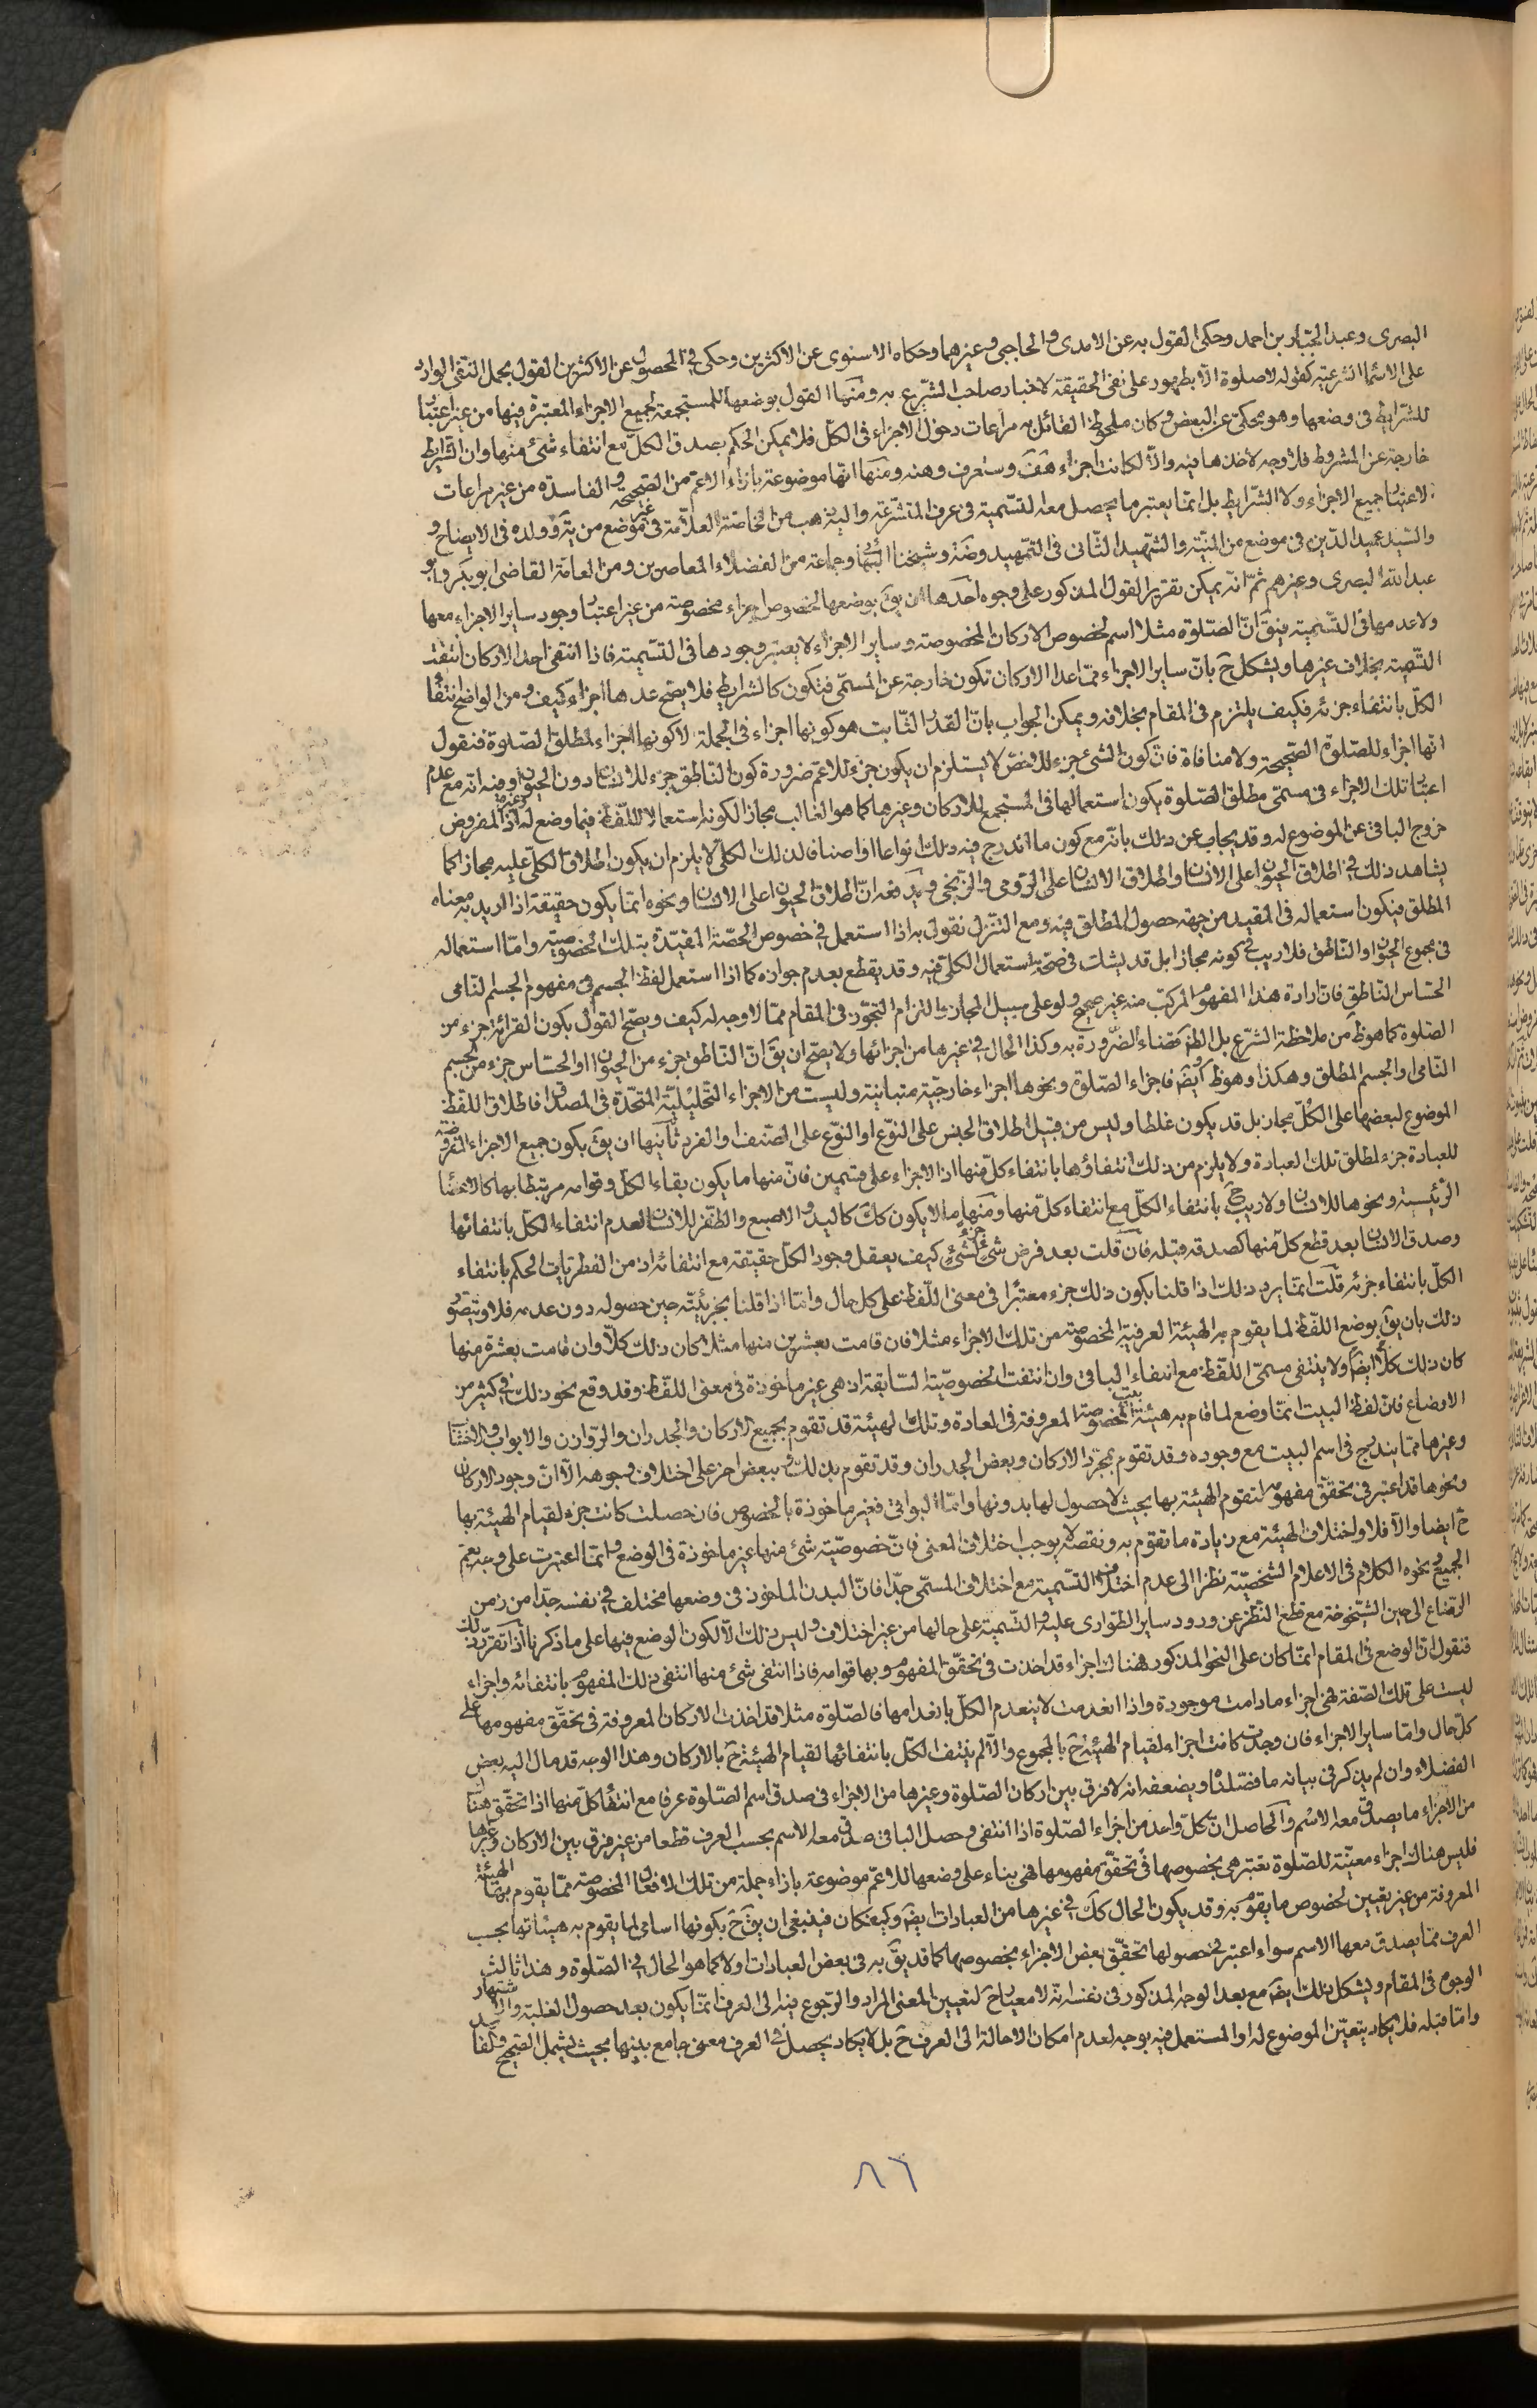 البصرى وعبد الجبّار بن احمد وحكى القول به عن الامدى والحاجبى وغيرهما وحكاه الاسنوى عن الاكثرين وحكى فى المحصول عن الاكثرين القول بحمل النفى الوارد
على الاسماء الشرعيّة كقوله لا صلوة الّا بطهور على نفى الحقيقة لاخبار صاحب الشرع به ومنها القول بوضعها للمستجمعة لجميع الاجزاء المعتبرة فيها من غير اعتبار
للشرايط فى وضعها وهو محكى عن البعض وكان ملحوظ القائل به مراعات دخول الاجزاء فى الكلّ فلا يمكن الحكم بصدق الكلّ مع انتفاء شئ منها وان الشرايط
خارجة عن المشروط فلا وجه لاخذها فيه والّا لكانت اجزاء هف وستعرف وهنه ومنها انّها موضوعة بازاء الاعمّ من الصّحيحة والفاسدة من غير مراعات
لاعتبار جميع الاجزاء ولا الشّرايط بل انّما يعتبر ما يحصل معه التّسمية فى عرف المتشرّعة واليه ذهب من الخاصّة العلّامة فى غير موضع من يه وولده فى الايضاح و
والسّيد عميد الدّين فى موضع من المنية والشّهيد الثّانى فى التّمهيد وضة وشيخنا البهائى وجماعة من الفضلاء المعاصرين ومن العامّة القاضى ابو بكر وابو
عبد الله البصرى وغيرهم ثمّ انّه يمكن تقرير القول المذكور على وجوه احدها ان يق بوضعها لخصوص اجزاء مخصوصة من غير اعتبار وجود ساير الاجزاء معها
ولا عدمها فى التّسمية فيق انّ الصّلوة مثلا اسم لخصوص الاركان المخصوصة وساير الاجزاء لا يعتبر وجودها فى التّسمية فاذا انتفى احد الاركان انتفت
التّسمية بخلاف غيرها ويشكل ح بانّ ساير الاجزاء ممّا عدا الاركان تكون خارجة عن المسمّى فتكون كالشرايط فلا يصحّ عدها اجزاء كيف ومن الواضح انتفاء
الكلّ بانتفاء جزئه فكيف يلتزم فى المقام بخلافه ويمكن الجواب بانّ القدر الثّابت هو كونها اجزاء فى الجملة لا كونها اجزاء لمطلق الصّلوة فنقول
انّها اجزاء للصّلوة الصّحيحة ولا منافاة فانّ كون الشئ جزء للاخصّ لا يستلزم ان يكون جزء للاعمّ ضرورة كون النّاطق جزء للانسان دون الحيوان وفيه انه مع عدم
اعتبار تلك الاجزاء فى مسمّى مطلق الصّلوة يكون استعمالها فى المستجمع للاركان وغيرها كما هو الغالب مجازا لكونه استعمالا للّفظ فيما وضع له وغيره اذ المفروض
خروج الباقى عن الموضوع له وقد يجاب عن ذلك بانّه مع كون ما اندرج فيه ذلك انواعا او اصنافا لذلك الكلّى لا يلزم ان يكون اطلاق الكلّى عليه مجازا كما
يشاهد ذلك فى اطلاق الحيوان على الانسان واطلاق الانسان على الرّومى والزنجى ويدفعه انّ اطلاق الحيوان على الانسان ونحوه انّما يكون حقيقة اذا اريد به معناه
المطلق فيكون استعماله فى المقيد من جهة حصول المطلق فيه ومع التنزل نقول به اذا استعمل فى خصوص الحصّة المقيّدة بتلك الخصوصية وامّا استعماله
فى مجموع الحيوان والنّاطق فلا ريب فى كونه مجازا بل قد يشك فى صحّة استعمال الكلّى فيه وقد يقطع بعدم جوازه كما اذا استعمل لفظ الجسم فى مفهوم الجسم النّامى
الحسّاس النّاطق فانّ ارادة هذا المفهوم المركّب منه غير صحيح ولو على سبيل المجاز والتزام التجوّز فى المقام ممّا لا وجه له كيف ويصحّ القول بكون القرائة جزء من
الصّلوة كما هو ظ من ملاحظة الشّرع بل الظ قضاء الضّرورة به وكذا الحال فى غيرها من اجزائها ولا يصحّ ان يق انّ النّاطق جزء من الحيوان او الحسّاس جزء من الجسم
النّامى او الجسم المطلق وهكذا وهو ظ ايضا فاجزاء الصّلوة ونحوها اجزاء خارجيّة متباينة وليست من الاجزاء التّحليليّة المتّحدة فى المصداق فاطلاق اللفظ
الموضوع لبعضها على الكلّ مجاز بل قد يكون غلطا وليس من قبيل اطلاق الجنس على النّوع او النّوع على الصّنف او الفرد ثانيها ان يق بكون جميع الاجزاء المفروضة
للعبادة جزء لمطلق تلك العبادة ولا يلزم من ذلك انتفاؤها بانتفاء كلّ منها اذ الاجزاء على قسمين فانّ منها ما يكون بقاء الكلّ وقوامه مرتبطا بها كالاعضاء
الرّئيسيّة ونحوها للانسان ولا ريب ح بانتفاء الكلّ مع انتفاء كلّ منها ومنها ما لا يكون كك كاليد والاصبع والظّفر للانسان لعدم انتفاء الكلّ بانتفائها
وصدق الانسان بعد قطع كلّ منها كصدقه قبله فان قلت بعد فرض شئ جزء لشئ كيف يعقل وجود الكلّ حقيقة مع انتفائه اذ من الفطريّات الحكم بانتفاء
الكلّ بانتفاء جزئه قلت انّما يرد ذلك اذا قلنا بكون ذلك جزء معتبرا فى معنى اللّفظ على كلّ حال وامّا اذا قلنا بجزئيّته حين حصوله دون عدمه فلا ويتصور
ذلك بان يق بوضع اللّفظ لما يقوم به الهيئة العرفية المخصوصة من تلك الاجزاء مثلا فان قامت بعشرين منها مثلا كان ذلك كلّا وان قامت بعشرة منها
كان ذلك كلّا ايضا ولا ينتفى مسمّى اللّفظ مع انتفاء الباقى وان انتفت الخصوصيّة السّابقة اذ هى غير ماخوذة فى معنى اللّفظ وقد وقع نحو ذلك فى كثير من
الاوضاع فانّ لفظ البيت انّما وضع لما قام به هيئة البيت المخصوصة المعروفة فى العادة وتلك الهيئة قد تقوم بجميع الاركان والجدران والرّوازن والابواب والاخشاب
وغيرها ممّا يندرج فى اسم البيت مع وجوده وقد تقوم بمجرّد الاركان وبعض الجدران وقد تقوم بذلك وببعض اخر على اختلاف وجوهه الّا انّ وجود الاركان
ونحوها قد اعتبر فى تحقّق مفهومه لتقوم الهيئة بها بحيث لا حصول لها بدونها وامّا البواقى فغير ماخوذة بالخصوص فان حصلت كانت جزء لقيام الهيئة بها
ح ايضا والّا فلا واختلاف الهيئة مع زيادة ما تقوم به ونقصه لا يوجب اختلاف المعنى فانّ خصوصيّة شئ منها غير ماخوذة فى الوضع وانما اعتبرت على وجه يعمّ
الجميع ونحوه الكلام فى الاعلام الشخصيّة نظرا الى عدم اختلاف التسمية مع اختلاف المسمّى جدّا فانّ البدن الماخوذ فى وضعها مختلف فى نفسه جدّا من زمن
الرّضاع الى حين الشّيخوخة مع قطع النّظر عن ورود ساير الطّوارى عليه والتّسمية على حالها من غير اختلاف وليس ذلك الّا لكون الوضع فيها على ما ذكرنا اذا تقرّر ذلك
فنقول انّ الوضع فى المقام انّما كان على النحو المذكور فهناك اجزاء قد اخذت فى تحقّق المفهوم وبها قوامه فاذا انتفى شئ منها انتفى ذلك المفهوم بانتفائه واجزاء
ليست على تلك الصّفة فهى اجزاء ما دامت موجودة واذا انعدمت لا ينعدم الكلّ بانعدامها فالصّلوة مثلا قد اخذت الاركان المعروفة فى تحقّق مفهومها على
كلّ حال وامّا ساير الاجزاء فان وجدت كانت اجزاء لقيام الهيئة ح بالمجموع والّا لم ينتف الكلّ بانتفائها لقيام الهيئة ح بالاركان وهذا الوجه قد مال اليه بعض
الفضلاء وان لم يذكر فى بيانه ما فصّلناه ويضعفه انه لا فرق بين اركان الصّلوة وغيرها من الاجزاء فى صدق اسم الصّلوة عرفا مع انتفاء كلّ منها اذا تحقّق هناك
من الاجزاء ما يصدق معه الاسم والحاصل انّ كلّ واحد من اجزاء الصّلوة اذا انتفى وحصل الباقى صدق معه الاسم بحسب العرف قطعا من غير فرق بين الاركان وغيرها
فليس هناك اجزاء معيّنة للصّلوة تعتبر هى بخصوصها فى تحقّق مفهومها فهى بناء على وضعها للاعمّ موضوعة بازاء جملة من تلك الافعال المخصوصة ممّا يقوم بها الهيئة
المعروفة من غير تعيين لخصوص ما يقوم به وقد يكون الحال كك فى غيرها من العبادات ايضا وكيف كان فينبغى ان يق ح بكونها اسامى لما يقوم به هيئاتها بحسب
العرف ممّا يصدق معها الاسم سواء اعتبر فى حصولها تحقّق بعض الاجزاء بخصوصها كما قد يق به فى بعض العبادات او لا كما هو الحال فى الصّلوة وهذا ثالث
الوجوه فى المقام ويشكل ذلك ايضا مع بعد الوجه المذكور فى نفسه انّه لا معيار ح لتعيين المعنى المراد والرّجوع فيه الى العرف انّما يكون بعد حصول الغلبة والاشتهار
وامّا قبله فلا يكاد يتعيّن الموضوع له او المستعمل فيه بوجه لعدم امكان الاحالة الى العرف ح بل لا يكاد يحصل فى العرف معنى جامع بينها بحيث يشمل الصّحيح والفاسد
٨٦